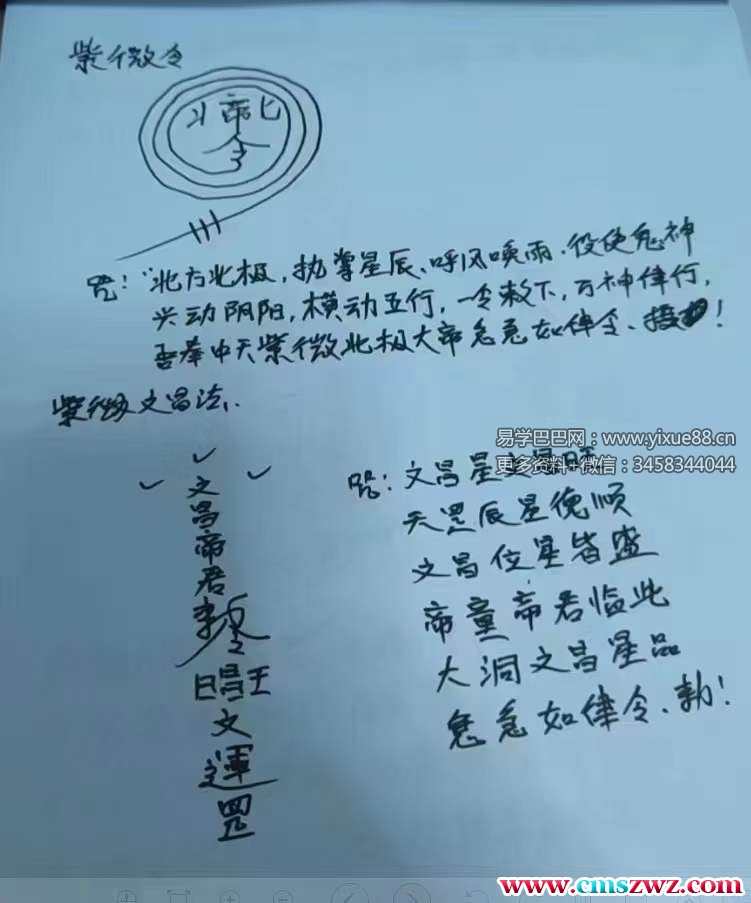 紫微令
斗 帝 北
令
咒："北方北极,执掌星辰、呼风唤雨.役使鬼神
兴动阴阳,横动五行,一令敕下,万神律行,
吾奉中天紫微北极大帝急急如律令、!
紫微文昌法:
文昌帝君
敕令
日昌王
文
運
咒
咒:文昌星
天 辰星德顺
文昌位星皆盛
帝童帝君临此
大洞文昌星品
急急如律令、勅!
易学巴巴网：www.yixue88.cn
更多资料+微信：3458344044
www.cmszwz.com